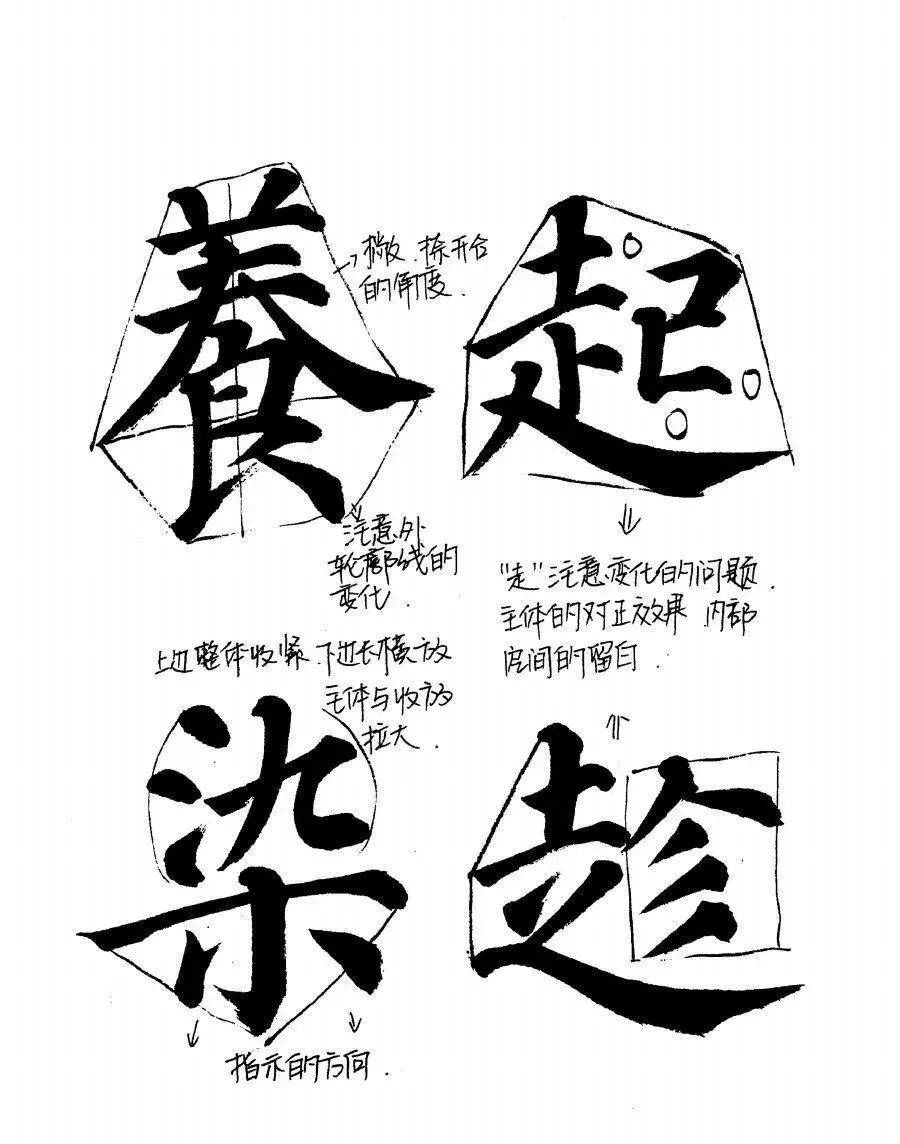 養
撇、捺开合
的角度.
注意外
轮廓线的
变化.
起
"走"注意变化的问题.
主体的对正效果 内部
空间的留白.
上边整体收紧 下边长横放
主体与收放
拉大.
染
指示的方向.
趁